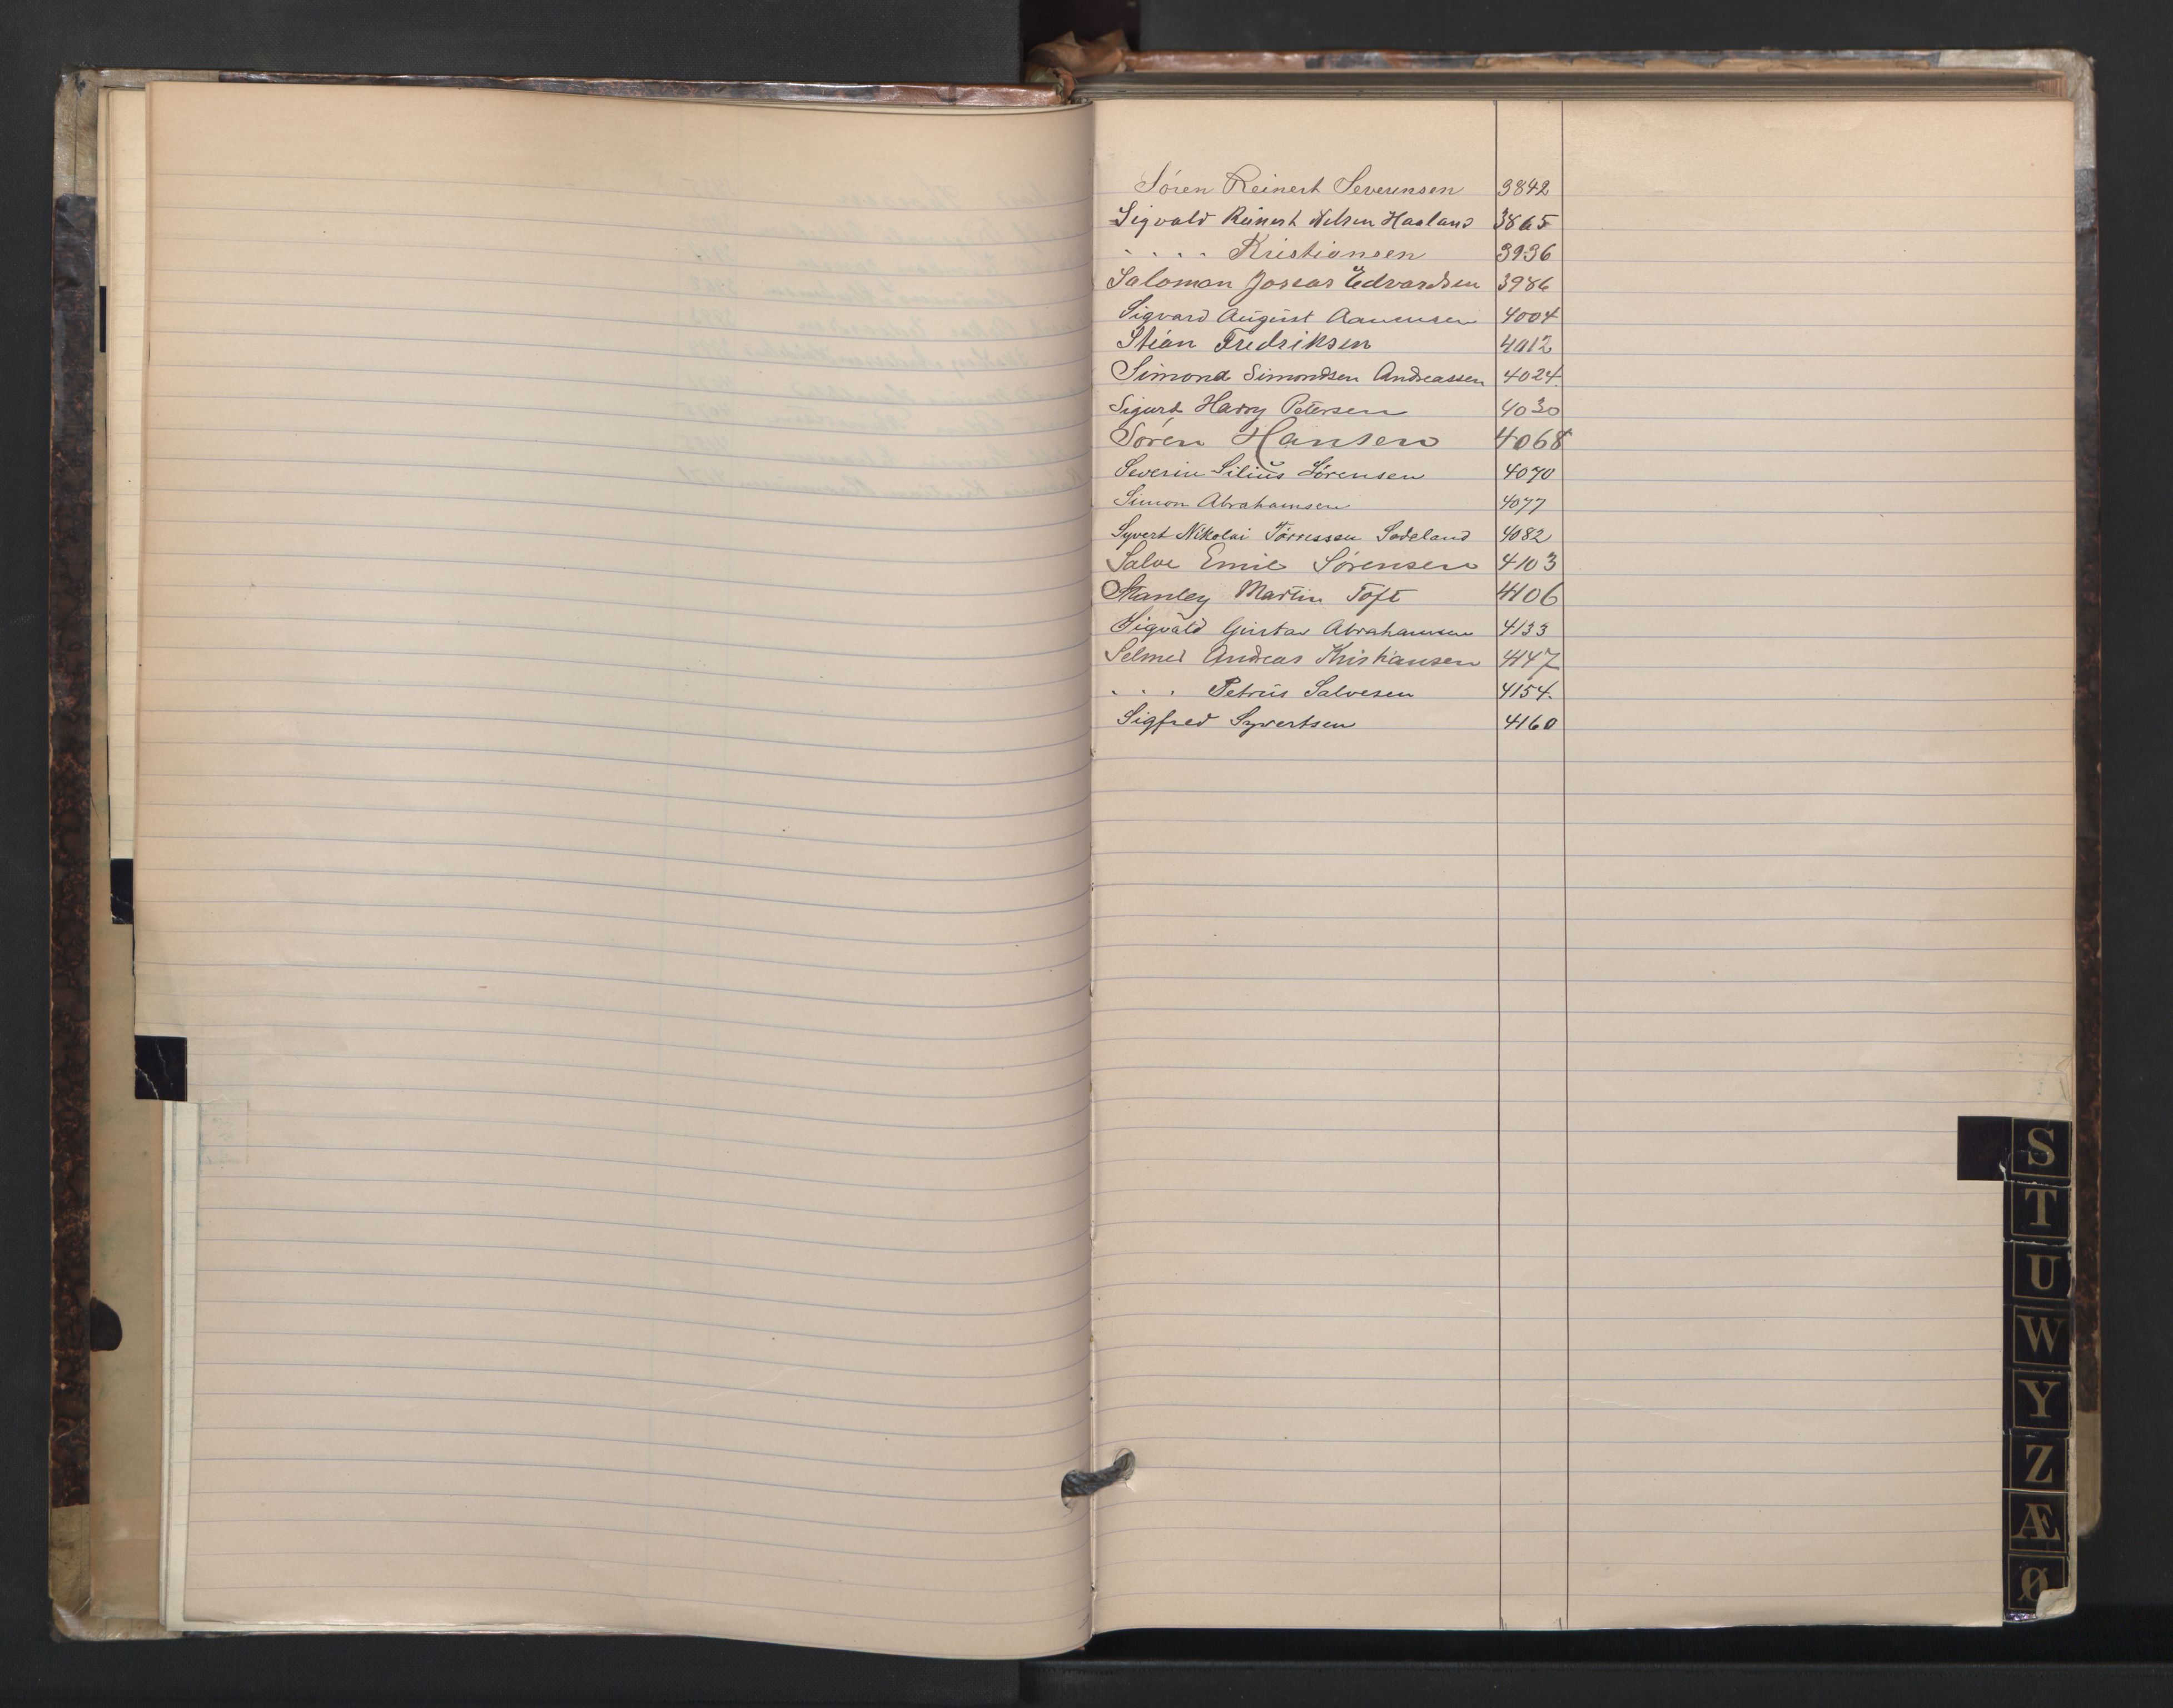 Søren Reinert Severinsen 3842
Sigvald Reinert Nilsen Haaland 3865
. . . . Kristiansen 3936
Salomon Joseas Edvardsen 3986
Sigvard August Aanensen 4004
Stian Fredriksen 4012
Simond Simondsen Andreassen 4024.
Sigurt Harry Petersen 4030
Søren Hansen 4068
Severin Silius Sørensen 4070
Simon Abrahamsen 4077
Syvert Nikolai Tørressen Sodeland 4082
Salve Emil Sørensen 4103
Stanley Martin Toft 4106
Sigvald Gustav Abrahamsen 4133
Selmer Andreas Kristiansen 4147
. . . Petrus Salvesen 4154.
Sigfred Syvertsen 4160
S
T
U
W
Y
Z
Æ
Ø